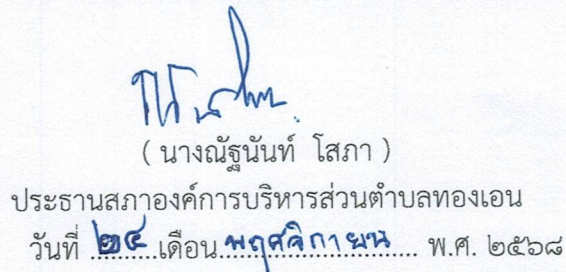 ( นางณัฐนันท์ โสภา )
ประธานสภาองค์การบริหารส่วนตำบลทองเอน
วันที่ ๒๔ เดือน พฤศจิกายน พ.ศ. ๒๕๖๘